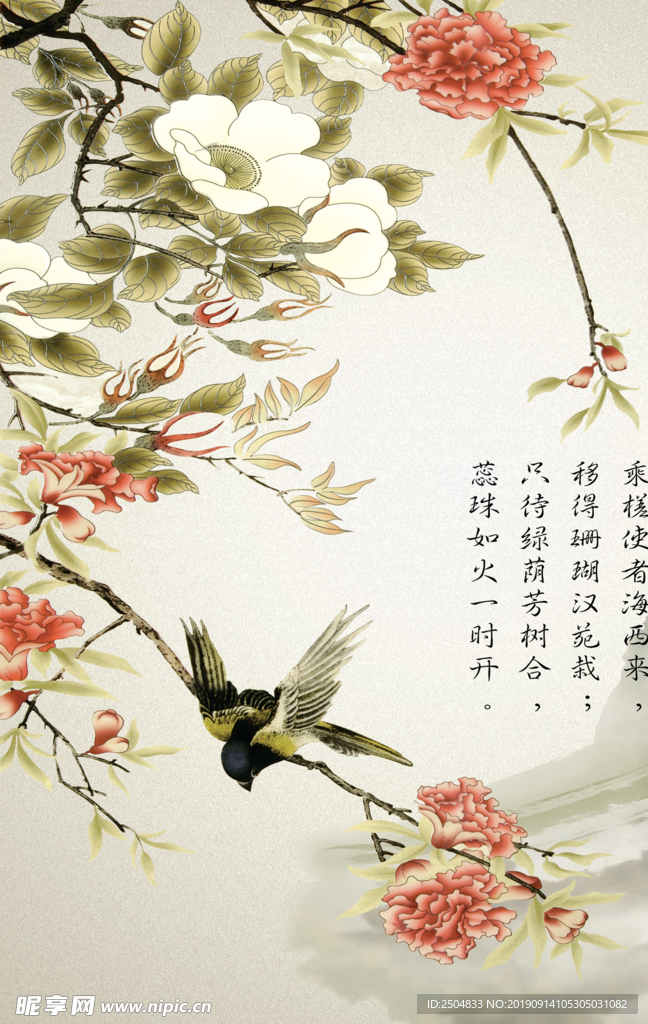 乘槎使者海西来，
移得珊瑚汉苑栽；
只待绿荫芳树合，
蕊珠如火一时开。
昵享网 www.nipic.cn
ID:2504833 NO:20190914105305031082